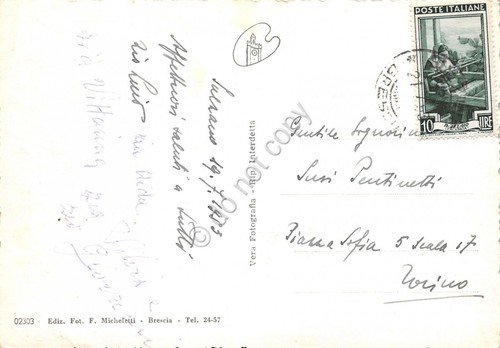 POSTE ITALIANE
10 LIRE
Sulzano 19.7.1953
Affettuosi saluti a tutti
Zio
zia
zia Vittoria
Gentile Signorina
Susi Pentinetti
Piazza Sofia 5 Scala 17
Torino
Vera Fotografia - Rip. Interdetta
02303 - Ediz. Fot. F. Micheletti - Brescia - Tel. 24-57
do not copy